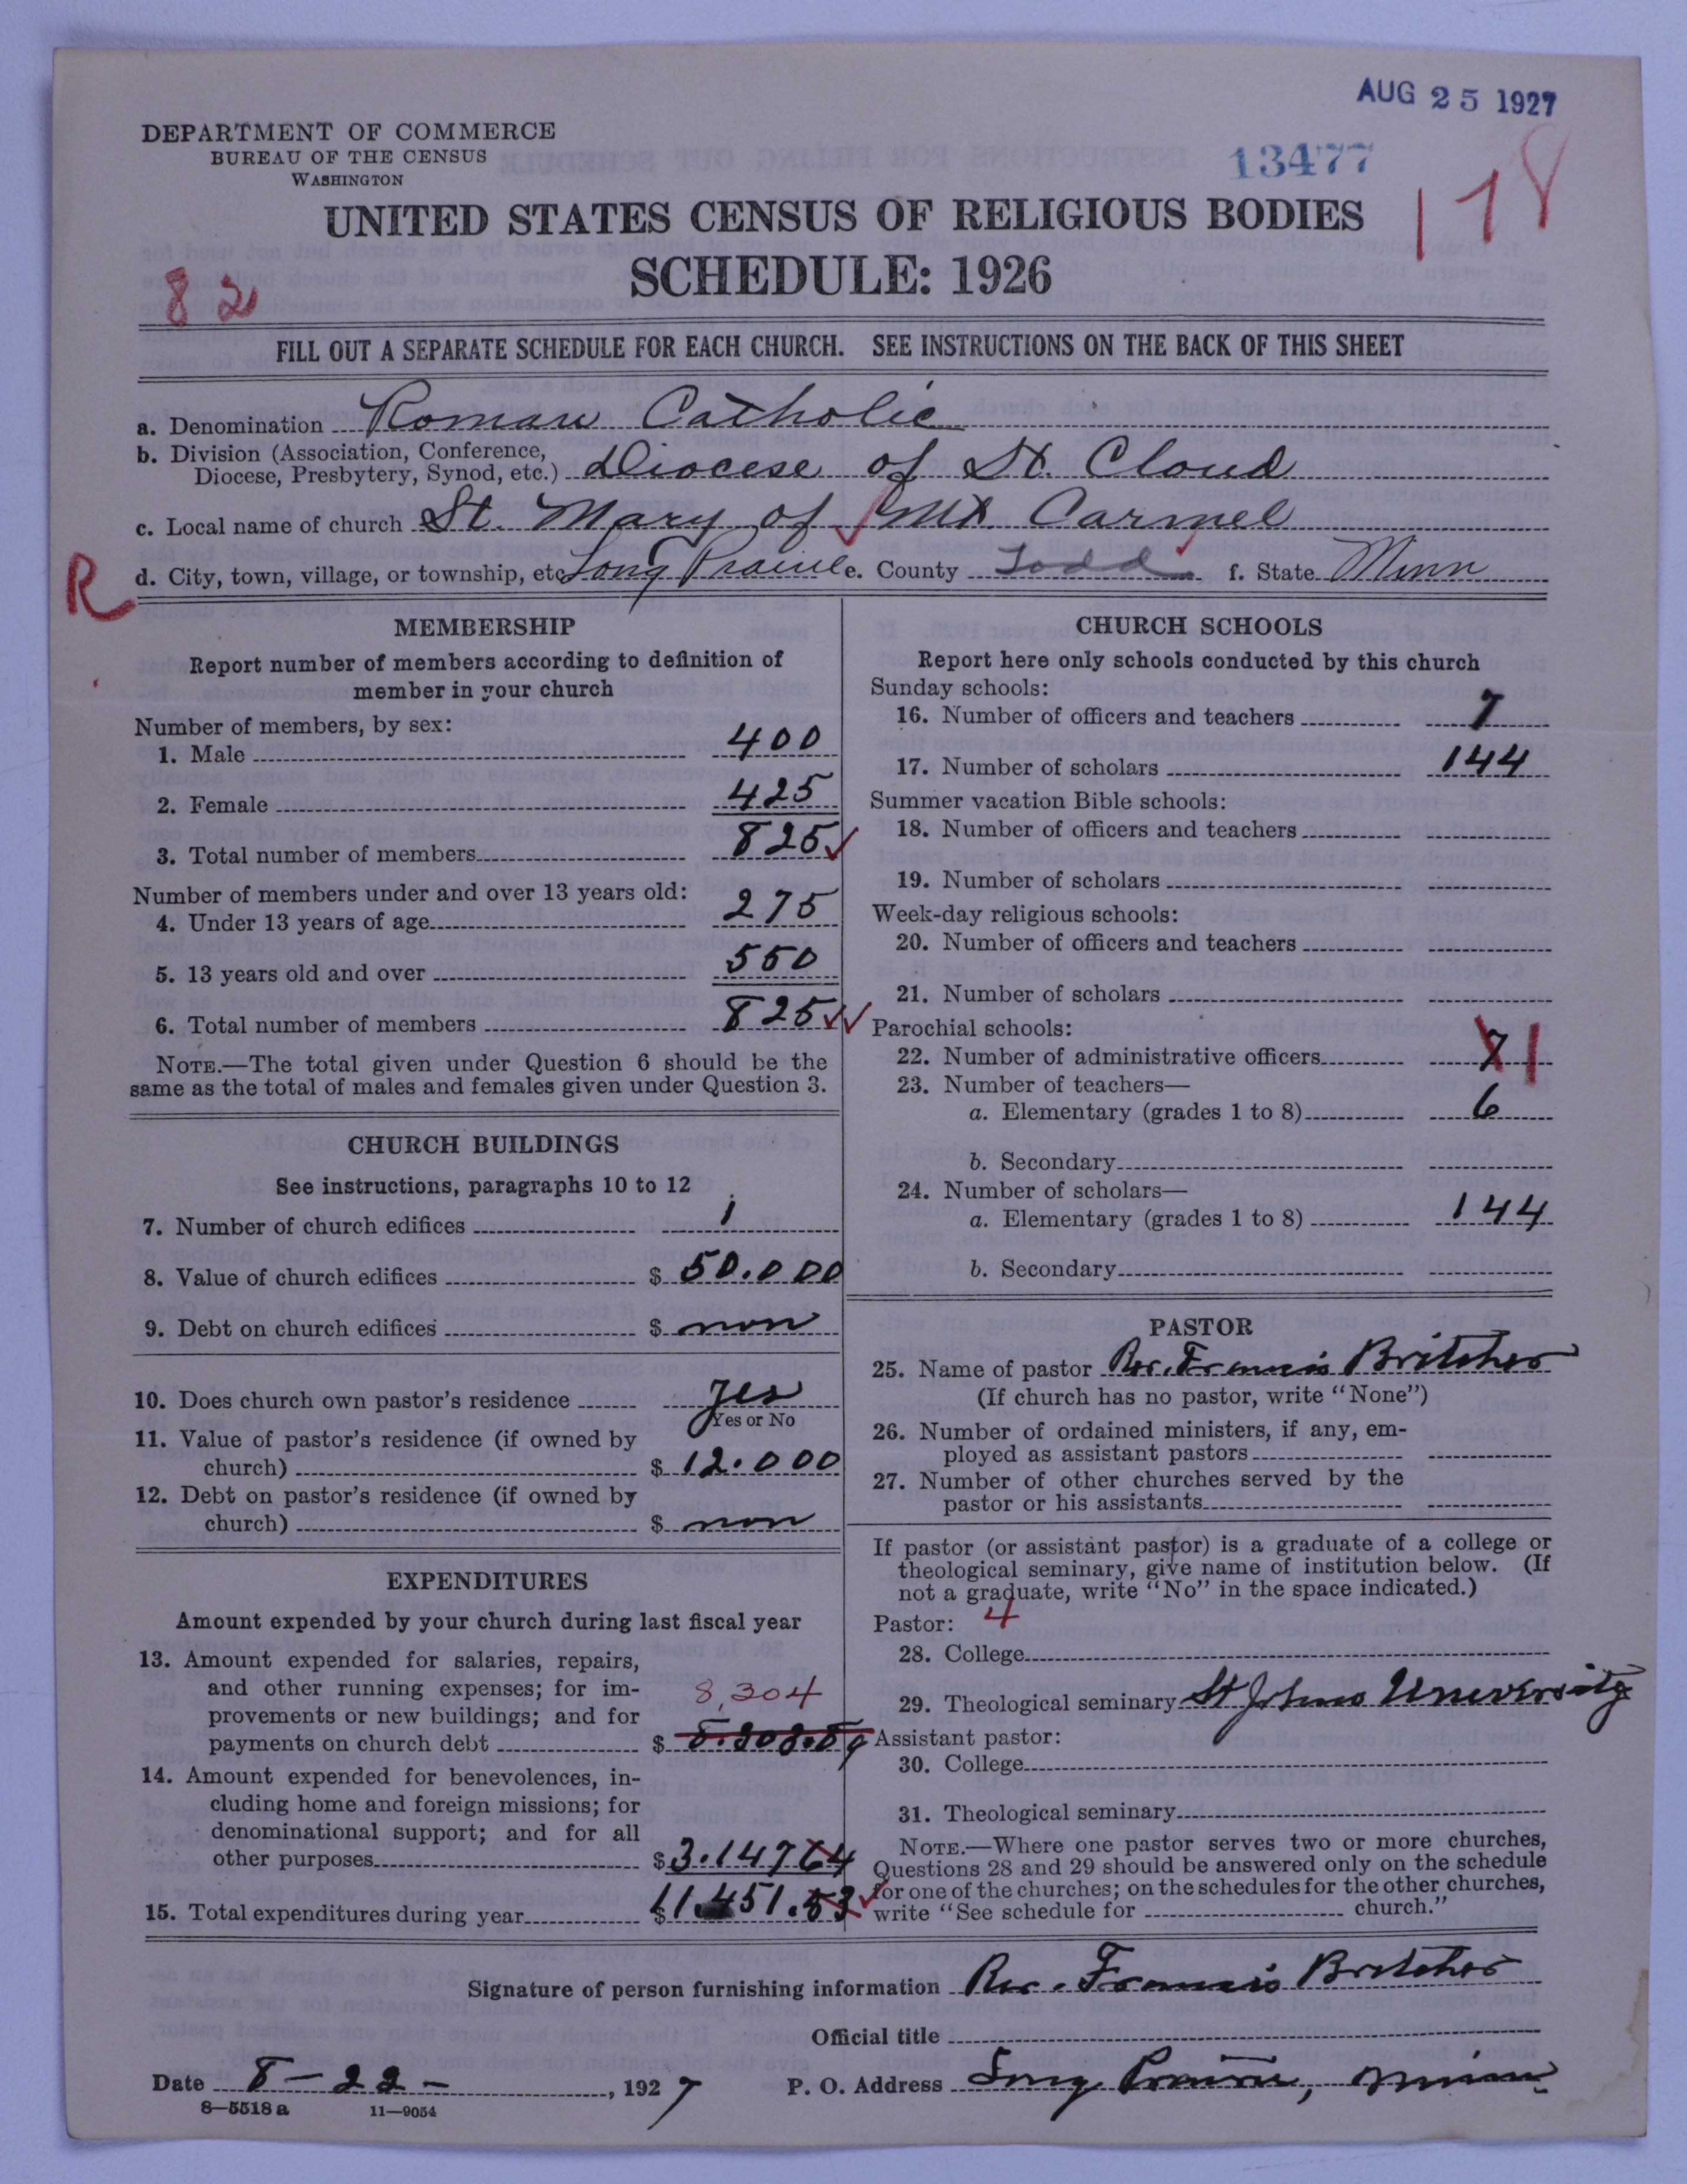 AUG 25 1927
DEPARTMENT OF COMMERCE
BUREAU OF THE CENSUS
WASHINGTON
13477
178
UNITED STATES CENSUS OF RELIGIOUS BODIES
SCHEDULE: 1926
82
FILL OUT A SEPARATE SCHEDULE FOR EACH CHURCH. SEE INSTRUCTIONS ON THE BACK OF THIS SHEET
a. Denomination Roman Catholic
b. Division (Association, Conference, Diocese, Presbytery, Synod, etc.) Diocese of St. Cloud
c. Local name of church St. Mary of Mt. Carmel
R
d. City, town, village, or township, etc. Long Prairie e. County Todd f. State Minn
MEMBERSHIP
Report number of members according to definition of
member in your church
Number of members, by sex:
1. Male 400
2. Female 425
3. Total number of members 825
Number of members under and over 13 years old:
4. Under 13 years of age 275
5. 13 years old and over 550
6. Total number of members 825
NOTE.—The total given under Question 6 should be the
same as the total of males and females given under Question 3.
CHURCH BUILDINGS
See instructions, paragraphs 10 to 12
7. Number of church edifices 1
8. Value of church edifices $ 50.000
9. Debt on church edifices $ non
10. Does church own pastor's residence Yes
Yes or No
11. Value of pastor's residence (if owned by
church) $ 12.000
12. Debt on pastor's residence (if owned by
church) $ non
EXPENDITURES
Amount expended by your church during last fiscal year
13. Amount expended for salaries, repairs,
and other running expenses; for im-
provements or new buildings; and for
payments on church debt $
8,304
14. Amount expended for benevolences, in-
cluding home and foreign missions; for
denominational support; and for all
other purposes $ 3.147 64
15. Total expenditures during year $ 11.451.53
CHURCH SCHOOLS
Report here only schools conducted by this church
Sunday schools:
16. Number of officers and teachers 7
17. Number of scholars 144
Summer vacation Bible schools:
18. Number of officers and teachers
19. Number of scholars
Week-day religious schools:
20. Number of officers and teachers
21. Number of scholars
Parochial schools:
22. Number of administrative officers 7 1
23. Number of teachers—
a. Elementary (grades 1 to 8) 6
b. Secondary
24. Number of scholars—
a. Elementary (grades 1 to 8) 144
b. Secondary
PASTOR
25. Name of pastor Rev. Francis Britcher
(If church has no pastor, write "None")
26. Number of ordained ministers, if any, em-
ployed as assistant pastors
27. Number of other churches served by the
pastor or his assistants
If pastor (or assistant pastor) is a graduate of a college or
theological seminary, give name of institution below. (If
not a graduate, write "No" in the space indicated.)
Pastor: 4
28. College
29. Theological seminary St Johns University
Assistant pastor:
30. College
31. Theological seminary
NOTE.—Where one pastor serves two or more churches,
Questions 28 and 29 should be answered only on the schedule
for one of the churches; on the schedules for the other churches,
write "See schedule for church."
Signature of person furnishing information Rev. Francis Britcher
Official title
Date 8-22-, 1927 P. O. Address Long Prairie, Minn.
8—5518 a 11—9054